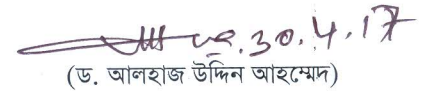 30.4.17
(ড. আলহাজ উদ্দিন আহম্মেদ)